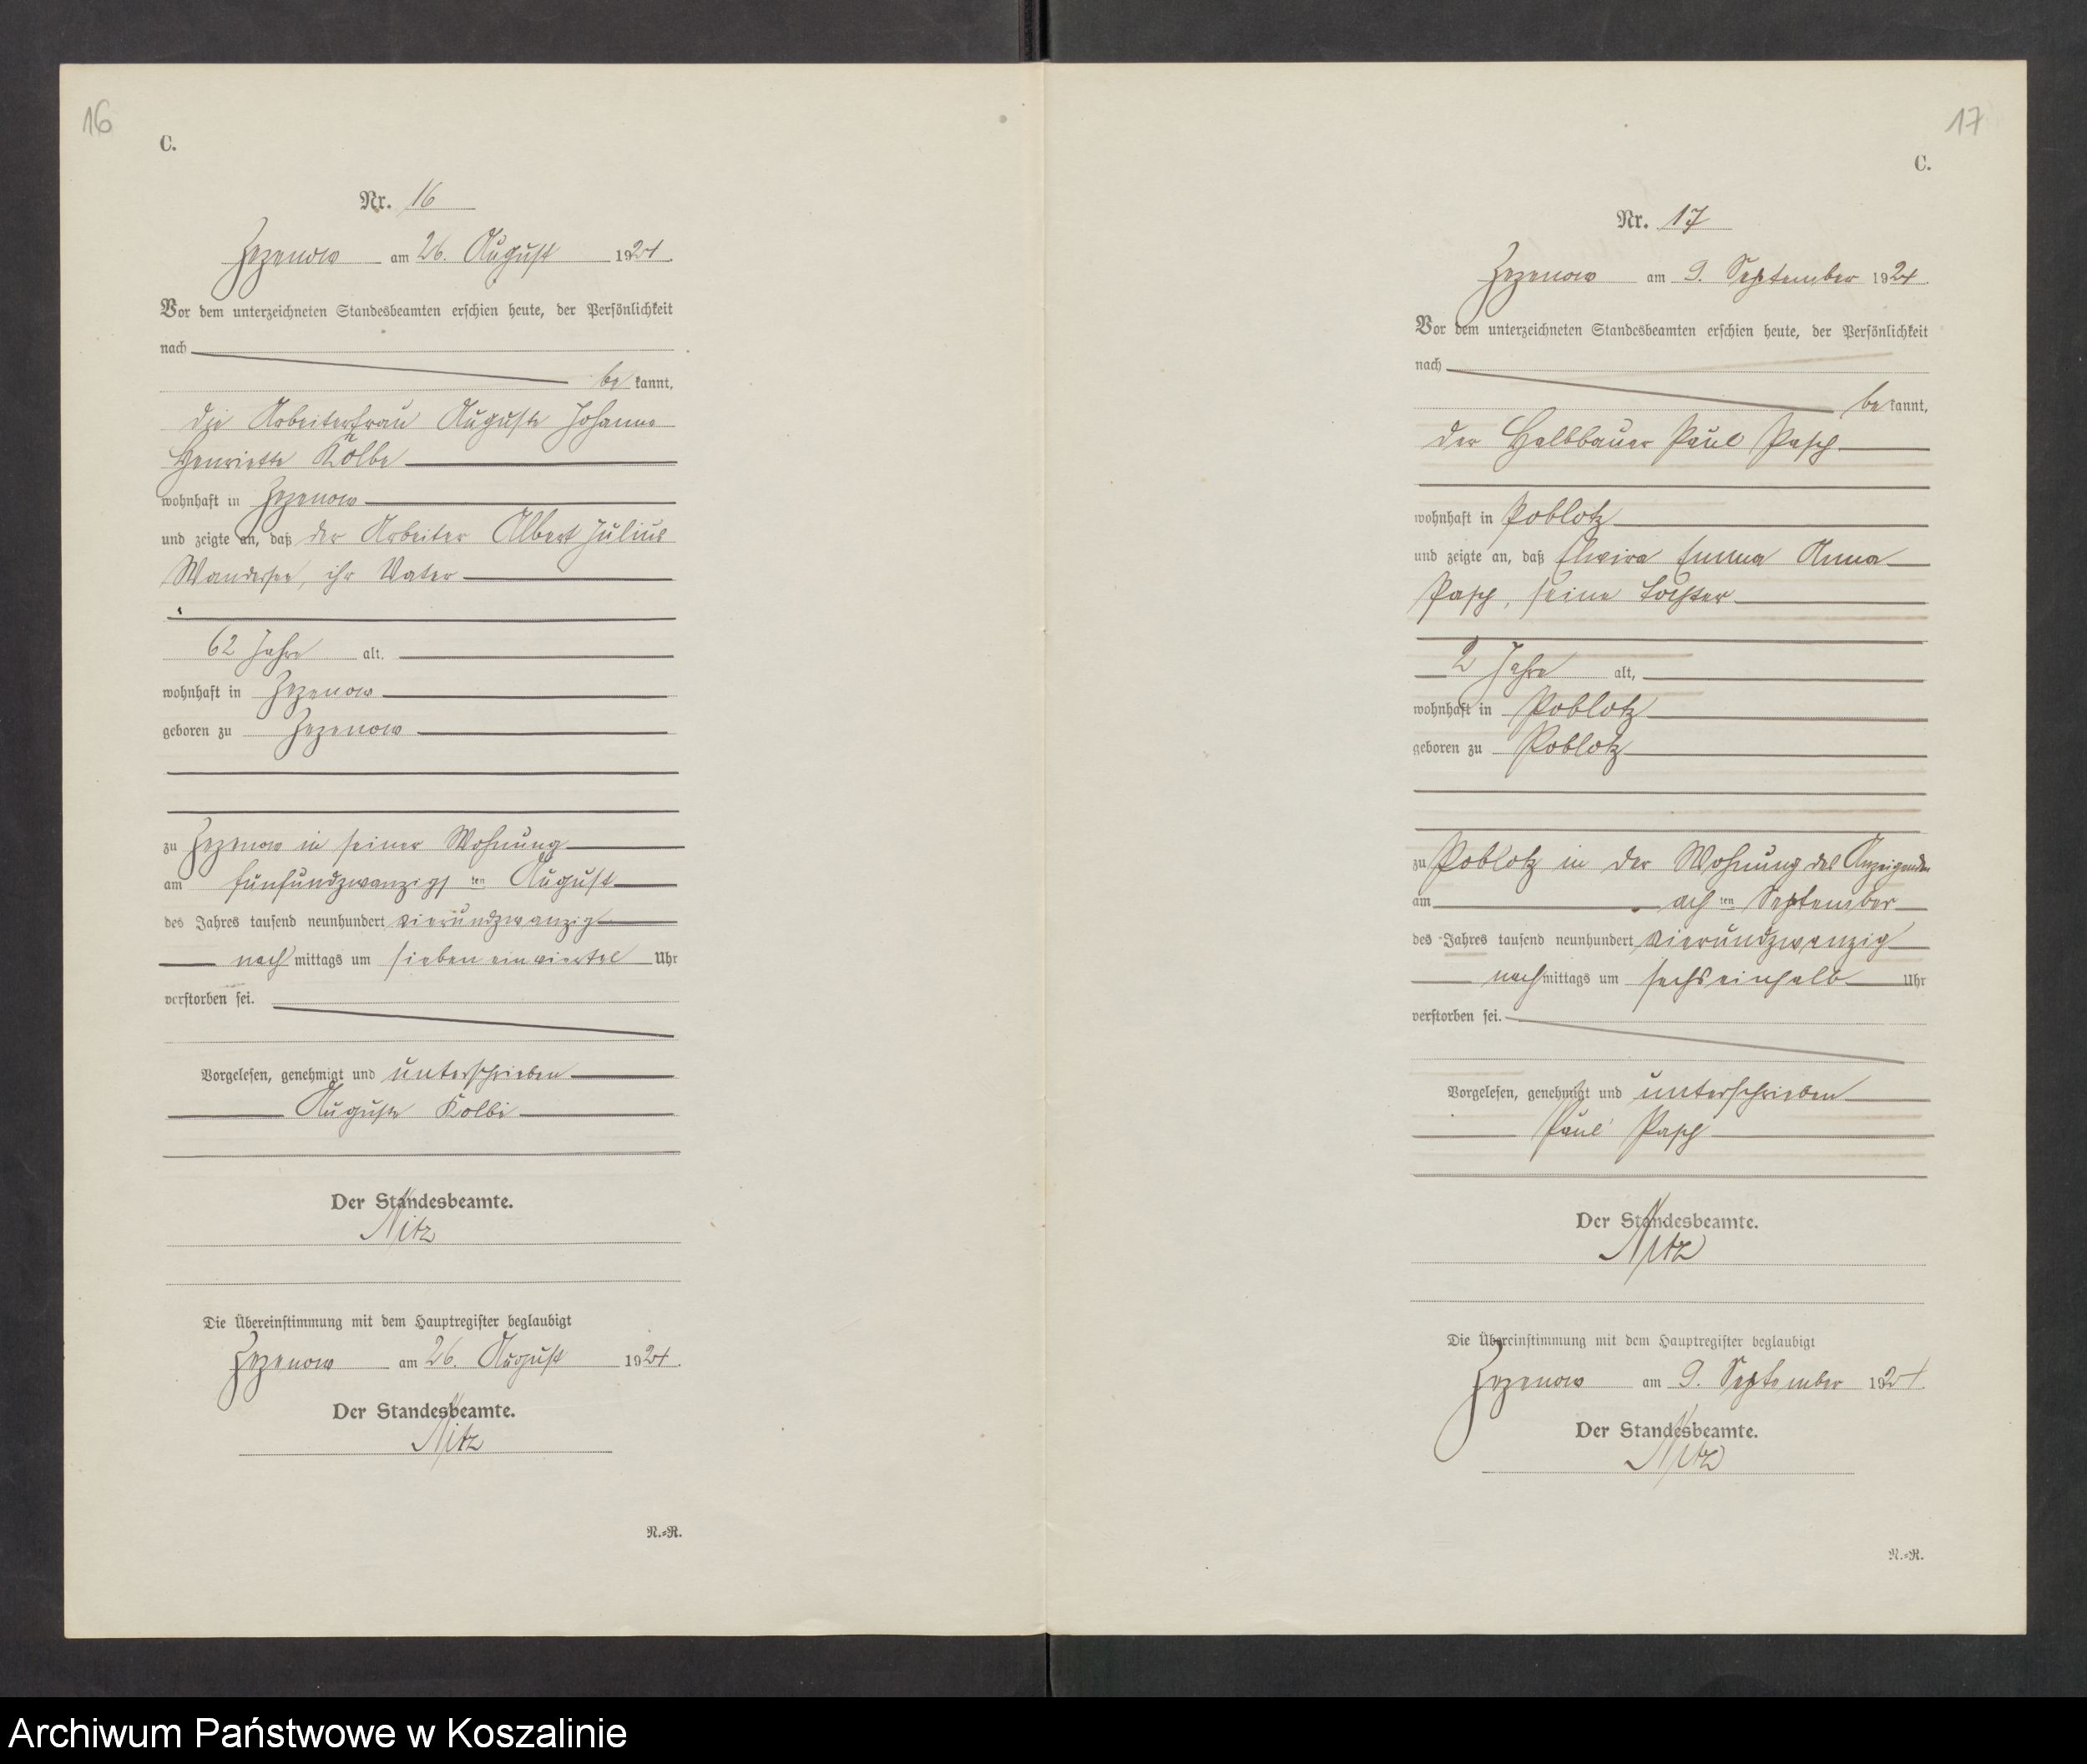 16
C.
Nr. 16
Zezenow am 26. August 1924.
Vor dem unterzeichneten Standesbeamten erschien heute, der Persönlichkeit
nach
be kannt,
die Arbeiterfrau Auguste Johanne
Henriette Kolbe
wohnhaft in Zezenow
und zeigte an, daß der Arbeiter Albert Julius
Wandersee, ihr Vater
62 Jahre alt.
wohnhaft in Zezenow
geboren zu Zezenow
zu Zezenow in seiner Wohnung
am fünfundzwanzigs ten August
des Jahres tausend neunhundert vierundzwanzig
nach mittags um sieben einviertel Uhr
verstorben sei.
Vorgelesen, genehmigt und unterschrieben
Auguste Kolbe
Der Standesbeamte.
Nitz
Die Übereinstimmung mit dem Hauptregister beglaubigt
Zezenow am 26. August 1924.
Der Standesbeamte.
Nitz
N.=R.
17
C.
Nr. 17
Zezenow am 9. September 1924
Vor dem unterzeichneten Standesbeamten erschien heute, der Persönlichkeit
nach
be kannt,
der Halbbauer Paul Pasch
wohnhaft in Poblotz
und zeigte an, daß Elwira Emma Anna
Pasch, seine Tochter
2 Jahre alt,
wohnhaft in Poblotz
geboren zu Poblotz
zu Poblotz in der Wohnung des Anzeigenden
am ach ten September
des Jahres tausend neunhundert vierundzwanzig
nach mittags um sechseinhalb Uhr
verstorben sei.
Vorgelesen, genehmigt und unterschrieben
Paul Pasch
Der Standesbeamte.
Nitz
Die Übereinstimmung mit dem Hauptregister beglaubigt
Zezenow am 9. September 1924
Der Standesbeamte.
Nitz
N.=R.
Archiwum Państwowe w Koszalinie